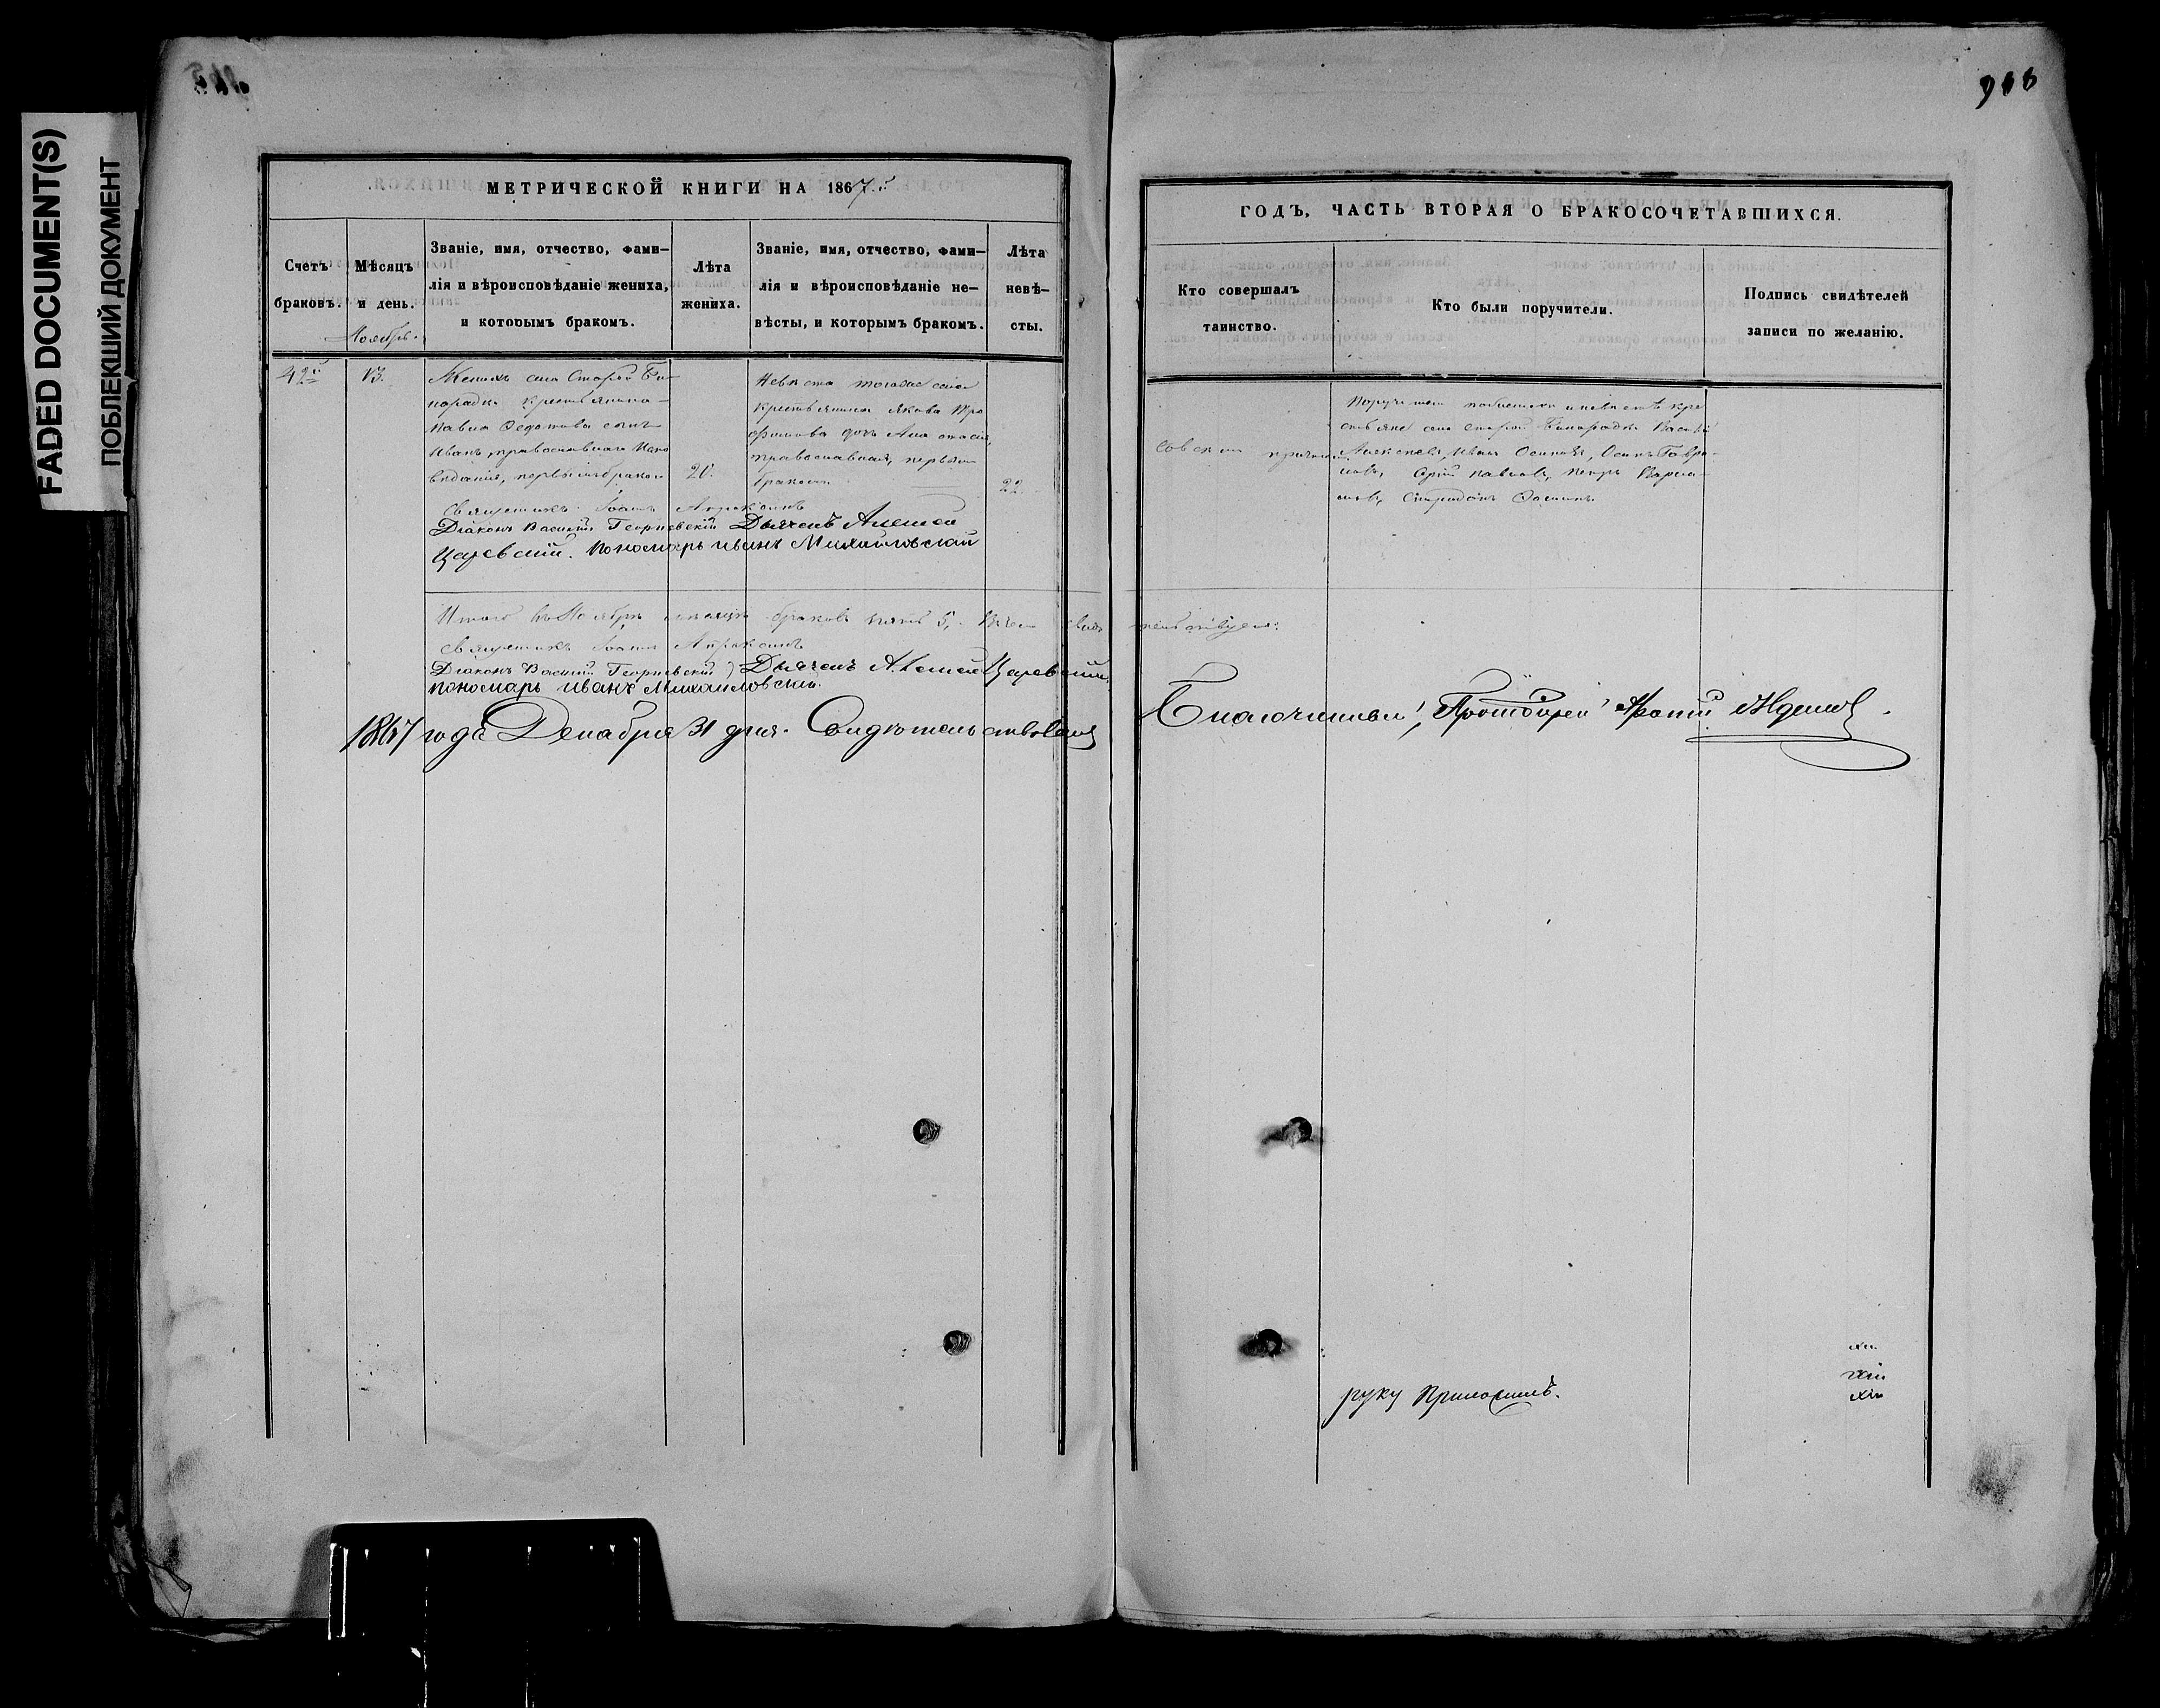 FADED DOCUMENT(S)
ПОБЛЕКШИЙ ДОКУМЕНТ
МЕТРИЧЕСКОЙ КНИГИ НА 1867.й
Счетъ браковъ.
Мѣсяцъ и день.
Званіе, имя, отчество, фами-
лія и вѣроисповѣданіе жениха,
и которымъ бракомъ.
Лѣта
жениха.
Званіе, имя, отчество, фами-
лія и вѣроисповѣданіе не-
вѣсты, и которымъ бракомъ.
Лѣта
невѣ-
сты.
Ноябрь.
42й
13.
Женихъ села Старой Би-
нарадки крестьянина
Павла Федотова сынъ
Иванъ, православнаго испо
вѣданія, первымъ бракомъ
20.
Невѣста тогоже села
крестьянина Якова Тро
фимова дочь Анастасія,
православная, первымъ
бракомъ
22.
Священникъ Іоаннъ
Діаконъ Василій Георгіевскій Дьячекъ Алексѣй
Царевскій. Пономарь Иванъ Михайловскій
Итого въ Ноябрѣ мѣсяцѣ браковъ пять 5,
Священникъ Іоаннъ
Діаконъ Василій Георгіевскій Дьячекъ Алексѣй Царевскій
пономарь Иванъ Михайловскій.
1867 года Декабря 31 дня. Свидѣтельствовалъ
ГОДЪ, ЧАСТЬ ВТОРАЯ О БРАКОСОЧЕТАВШИХСЯ.
Кто совершалъ
таинство.
Кто были поручители.
Подпись свидѣтелей
записи по желанію.
причтомъ
Поручители по женихѣ и невѣстѣ кре
стьяне села Старой Бинарадки Василій
Алексѣевъ, Иванъ Осиповъ, Осипъ Гаври
ловъ, Павловъ, Петръ
Спиридонъ
Благочинный, Протоіерей
руку приложилъ.